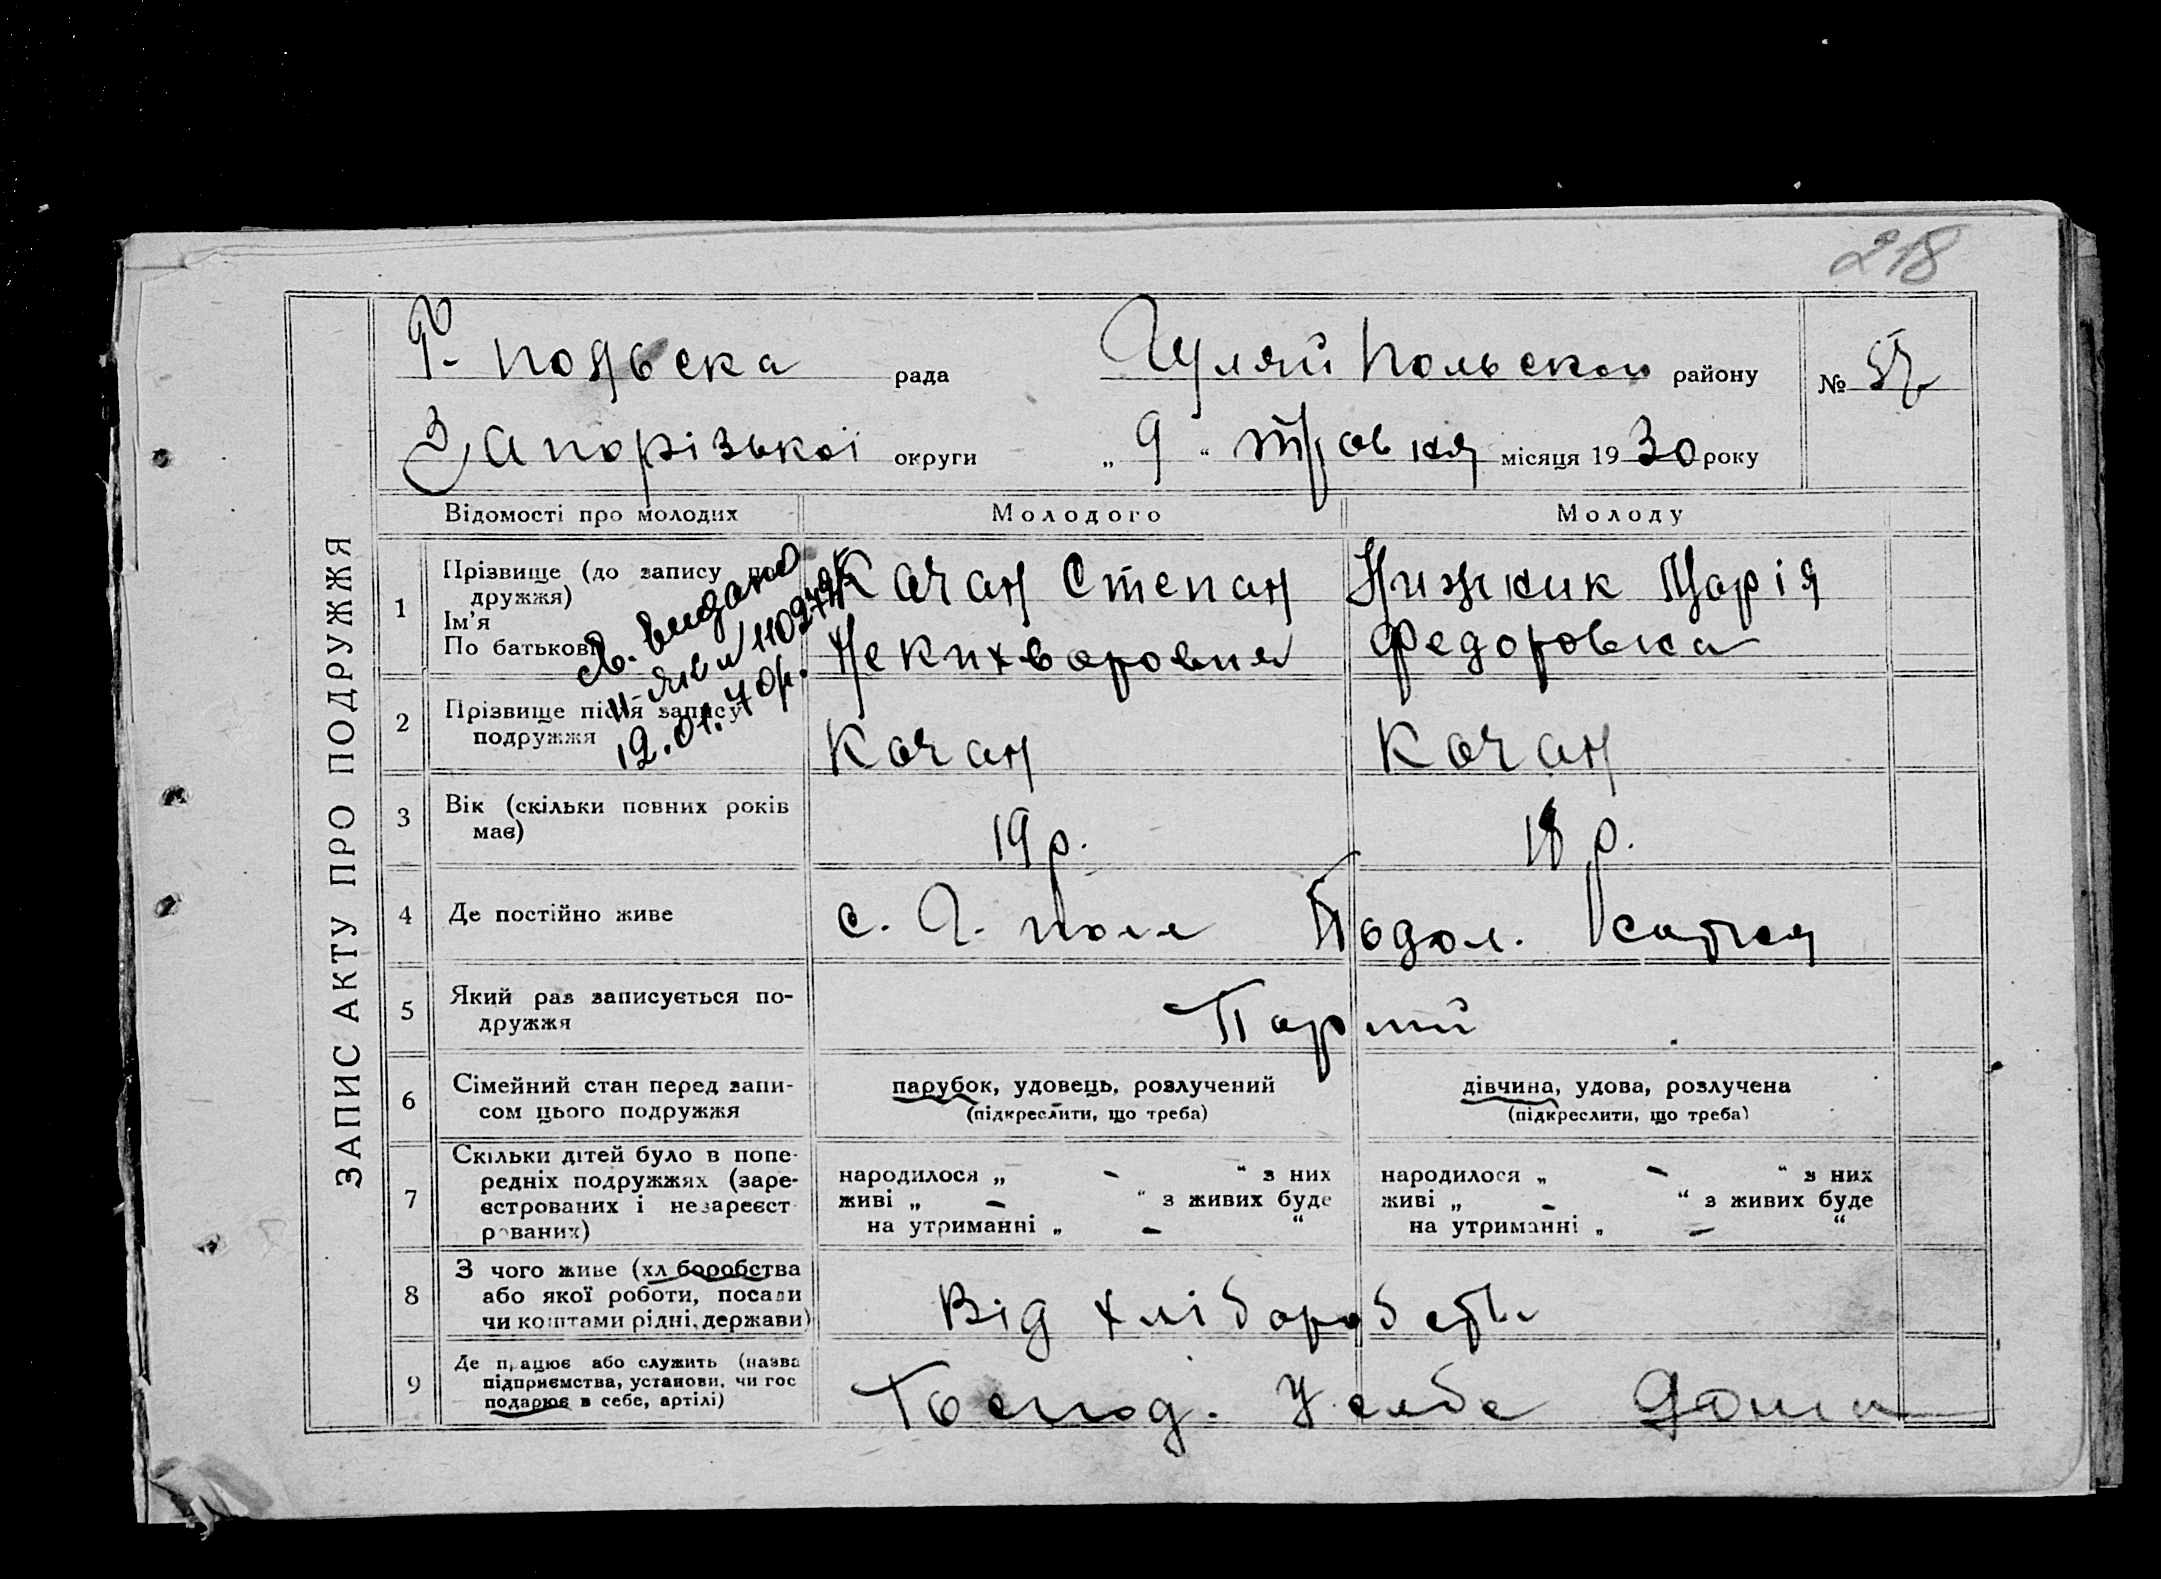 218
ЗАПИС АКТУ ПРО ПОДРУЖЖЯ
Г. польска рада Гуляйпольскои району № 57
Запорізької округи „ 9 “ травня місяця 1930 року
Відомості про молодих Молодого Молоду
1 Прізвище (до запису подружжя) Качан Степан Нижник Марія
Ім’я
По батькові Федоровна
св. видано
110279
12.01.70р.
2 Прізвище після запису подружжя Качан Качан
3 Вік (скільки повних років має) 19 р. 18 р.
4 Де постійно живе с. Г. поле Подол.
5 Який раз записується подружжя
6 Сімейний стан перед записом цього подружжя парубок, удовець, розлучений дівчина, удова, розлучена
(підкреслити, що треба) (підкреслити, що треба)
7 Скільки дітей було в попередніх подружжях (зареєстрованих і незареєстрованих) народилося „ - “ з них народилося „ - “ з них
живі „ - “ з живих буде живі „ - “ з живих буде
на утриманні „ - “ на утриманні „ - “
8 З чого живе (хліборобства або якої роботи, посади чи коштами рідні, держави) Від хліборобства
9 Де працює або служить (назва підприємства, установи, чи господарює в себе, артілі) Господ. У себе дома